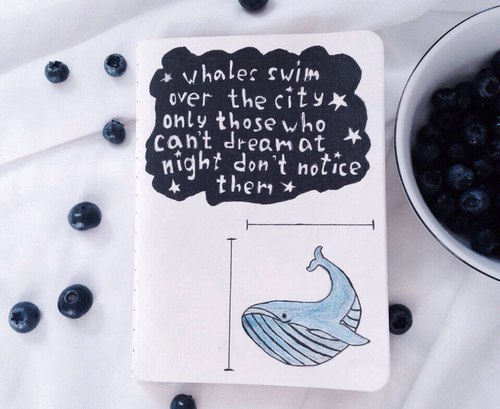 whales swim
over the city
only those who
can't dream at
night don't notice
them